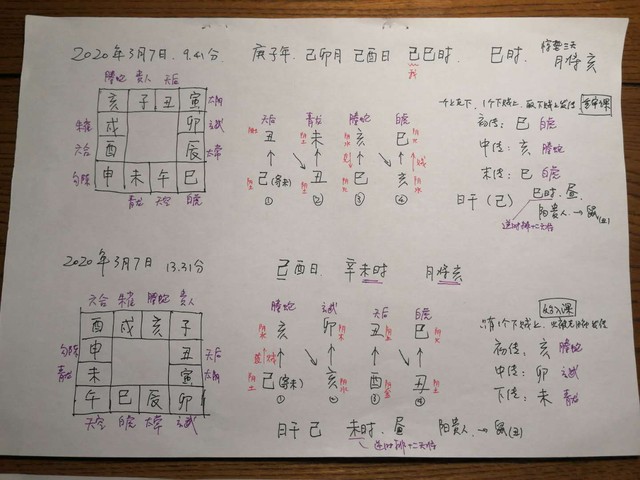 2020年3月7日. 9.41分. 庚子年. 己卯月 己酉日 己巳时. 巳时. 月将亥
螣蛇 贵人 天后
亥 子 丑 寅
朱雀 戌 卯 玄武
六合 酉 辰 太常
勾陈 申 未 午 巳
青龙 天空 白虎
天后 青龙 螣蛇 白虎
丑 未 亥 巳
己(寄未) 丑 巳 亥
① ② ③ ④
初传: 巳 白虎
中传: 亥 螣蛇
末传: 巳 白虎
日干(己) 巳时. 昼.
阳贵人. → 鼠(丑)
逆时排十二天将
2020年3月7日 13.31分 己酉日. 辛未时 月将亥
六合 朱雀 螣蛇 贵人
酉 戌 亥 子
勾陈 申 丑 天后
青龙 未 寅
午 巳 辰 卯
天空 白虎 太常 玄武
螣蛇 玄武 天后 白虎
亥 卯 丑 巳
己(寄未) 亥 酉 丑
① ② ③ ④
初传: 亥 螣蛇
中传: 卯 玄武
下传: 未 青龙
日干 己 未时. 昼 阳贵人. → 鼠(丑)
逆时排十二天将